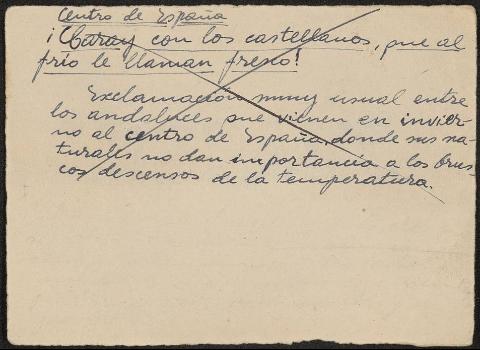 Centro de España
¡Caray con los castellanos, que al
frío le llaman fresco!
Exclamación muy usual entre
los andaluces que vienen en invier-
no al centro de España, donde sus na-
turales no dan importancia a los brus-
cos descensos de la temperatura.